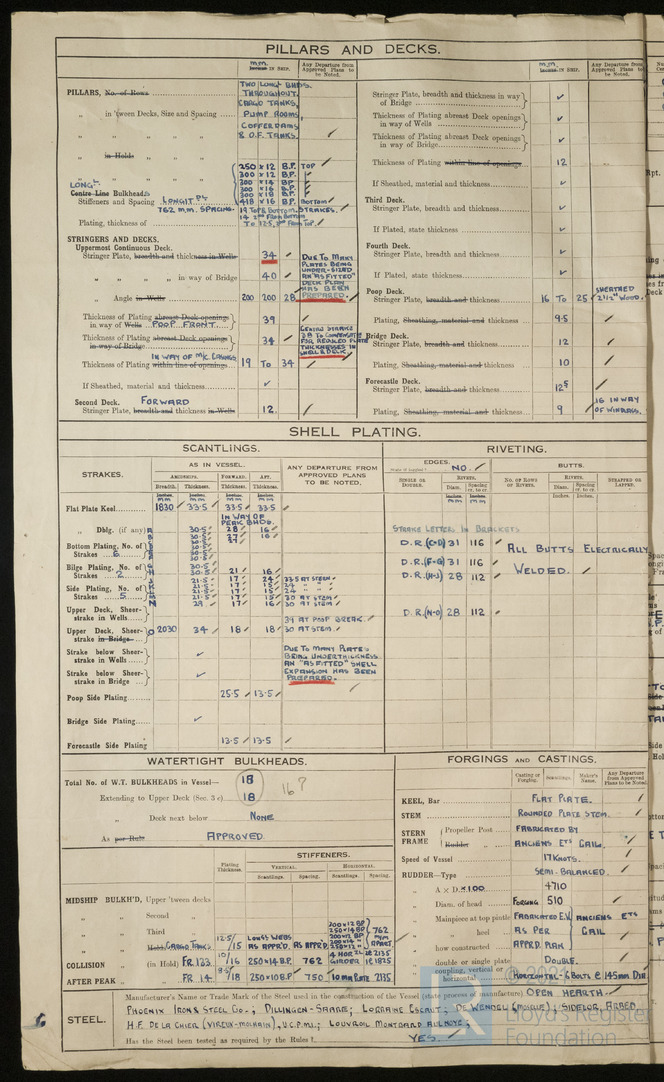 PILLARS AND DECKS.
m.m.
Inches IN SHIP.
Any Departure from Approved Plans to be Noted.
PILLARS, No. of Rows
TWO LONGL BHDS.
THROUGHOUT
CARGO TANKS,
PUMP ROOMS,
COFFERDAMS
& O.F. TANKS.
„ in 'tween Decks, Size and Spacing
„ „ „ „
„ „ „ „
„ in Holds
250 x 12 B.P. TOP
300 x 12 B.P.
300 x 14 BP
300 x 16 BP
300 x 18 BP
418 x 16 BP. BOTTOM
LONGL
Centre Line Bulkheads
Stiffeners and Spacing LONGIT PL
762 M.M. SPACING.
19 TOP & BOTTOM STRAKES.
14 2ND FROM BOTTOM
TO 12.5 FROM TOP
Plating, thickness of
STRINGERS AND DECKS.
Uppermost Continuous Deck.
Stringer Plate, breadth and thickness in Wells 34
„ „ „ „ in way of Bridge 40
DUE TO MANY
PLATES BEING
UNDER-SIZED
AN "AS FITTED"
DECK PLAN
HAS BEEN
PREPARED.
„ Angle in Wells 200 200 28
Thickness of Plating abreast Deck openings
in way of Wells POOP FRONT. 39
Thickness of Plating abreast Deck openings
in way of Bridge 34
CENTRE STRAKE
38 TO COMPENSATE
FOR REDUCED PLATE
THICKNESSES IN
SHELL & DECK.
IN WAY OF M/C CASINGS
Thickness of Plating within line of openings 19 TO 34
If Sheathed, material and thickness
Second Deck. FORWARD
Stringer Plate, breadth and thickness in Wells 12.
m.m.
Inches IN SHIP.
Any Departure from Approved Plans to be Noted.
Stringer Plate, breadth and thickness in way of Bridge
Thickness of Plating abreast Deck openings in way of Wells
Thickness of Plating abreast Deck openings in way of Bridge
Thickness of Plating within line of openings 12
If Sheathed, material and thickness
Third Deck.
Stringer Plate, breadth and thickness
If Plated, state thickness
Fourth Deck.
Stringer Plate, breadth and thickness
If Plated, state thickness
Poop Deck.
Stringer Plate, breadth and thickness 16 TO 25 SHEATHED 2½" WOOD.
Plating, Sheathing, material and thickness 9.5
Bridge Deck.
Stringer Plate, breadth and thickness 12
Plating, Sheathing, material and thickness 10
Forecastle Deck.
Stringer Plate, breadth and thickness 12.5
Plating, Sheathing, material and thickness 9
16 IN WAY
OF WINDLASS.
SHELL PLATING.
SCANTLINGS.
RIVETING.
STRAKES.
AS IN VESSEL.
AMIDSHIPS.
FORWARD.
AFT.
Breadth.
Thickness.
Thickness.
Thickness.
ANY DEPARTURE FROM APPROVED PLANS TO BE NOTED.
EDGES.
NO.
BUTTS.
SINGLE OR DOUBLE.
RIVETS.
Diam.
Spacing cr. to cr.
No. OF ROWS OF RIVETS.
RIVETS.
Diam.
Spacing cr. to cr.
STRAPPED OR LAPPED.
Flat Plate Keel 1830 33.5 33.5 33.5
IN WAY OF
PEAK BHDS.
„ Dblg. (if any)
Bottom Plating, No. of Strakes 6
Bilge Plating, No. of Strakes 2
Side Plating, No. of Strakes 5
33.5 AT STERN
30 AT STEM
30 AT STEM
Upper Deck, Sheerstrake in Wells
39 AT POOP BREAK.
Upper Deck, Sheerstrake in Bridge O 2030 34 18 18 30 AT STEM.
Strake below Sheerstrake in Wells
Strake below Sheerstrake in Bridge
DUE TO MANY PLATES
BEING UNDERTHICKNESS
AN "AS FITTED" SHELL
EXPANSION HAS BEEN
PREPARED.
Poop Side Plating 25.5 13.5
Bridge Side Plating
Forecastle Side Plating 13.5 13.5
STRAKE LETTER IN BRACKETS
D.R. (C-D) 31 116
D.R. (F-G) 31 116
D.R. (H-J) 28 112
D.R. (N-O) 28 112
ALL BUTTS ELECTRICALLY
WELDED.
WATERTIGHT BULKHEADS.
Total No. of W.T. BULKHEADS in Vessel— 18
16?
Extending to Upper Deck (Sec. 3 c) 18
„ Deck next below NONE
As per Rule APPROVED
Plating Thickness.
STIFFENERS.
VERTICAL.
HORIZONTAL.
Scantlings.
Spacing.
Scantlings.
Spacing.
MIDSHIP BULKH'D, Upper 'tween decks
„ „ Second „
„ „ Third „
„ „ Hold, CARGO TANKS 12.5/15 LONGL WEBS AS APPR'D. AS APPR'D.
762 M/M APART
COLLISION „ (in Hold) FR. 123 10/16 250x14 B.P. 762
AFTER PEAK „ FR. 14 9.5/18 250x10 B.P. 750 10 MM PLATE 2135
FORGINGS AND CASTINGS.
Casting or Forging.
Scantlings.
Maker's Name.
Any Departure from Approved Plans to be Noted.
KEEL, Bar FLAT PLATE.
STEM ROUNDED PLATE STEM.
STERN FRAME
Propeller Post FABRICATED BY
Rudder „ ANCIENS ETS CAIL.
Speed of Vessel 17 KNOTS.
RUDDER—Type SEMI-BALANCED.
„ A x D 4710
„ Diam. of head FORGING 510
„ Mainpiece at top pintle FABRICATED E.W. ANCIENS ETS
„ „ heel AS PER CAIL
„ how constructed APPRD. PLAN
„ double or single plate DOUBLE.
„ coupling, vertical or horizontal HORIZONTAL - 6 BOLTS @ 145mm DIA.
STEEL.
Manufacturer's Name or Trade Mark of the Steel used in the construction of the Vessel (state process of manufacture) OPEN HEARTH.
PHOENIX IRON & STEEL CO.; DILLINGEN-SAARE; LORRAINE ESCAUT; DE WENDEL (MOSELLE); SIDELOR; ARBED
H.F. DE LA CHIER (VIREUX-MOLHAIN), U.C.P.M.I.; LOUVROIL MONTBARD AULNOYE;
Has the Steel been tested as required by the Rules? YES.
© 2021
Lloyd's Register
Foundation